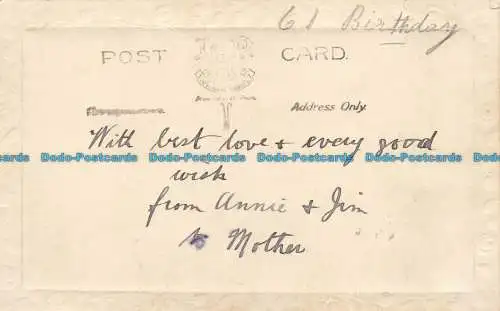 61 Birthday
POST CARD.
Address Only.
With best love & every good
Dodo-Postcards Dodo-Postcards Dodo-Postcards Dodo-Postcards
wish
from Annie & Jim
to Mother
Dodo-Postcards Dodo-Postcards Dodo-Postcards Dodo-Postcards